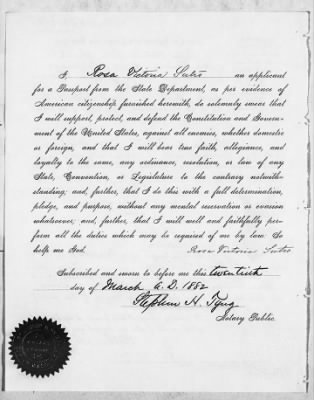 I Rosa Victoria Sutro an applicant
for a Passport from the State Department, as per evidence of
American citizenship furnished herewith, do solemnly swear that
I will support, protect, and defend the Constitution and Govern-
ment of the United States, against all enemies, whether domestic
or foreign, and that I will bear true faith, allegiance, and
loyalty to the same, any ordinance, resolution, or law of any
State, Convention, or Legislature to the contrary notwith-
standing; and, further, that I do this with a full determination,
pledge, and purpose, without any mental reservation or evasion
whatsoever; and, further, that I will well and faithfully per-
form all the duties which may be required of me by law. So
help me God. Rosa Victoria Sutro
Subscribed and sworn to before me this twentieth
day of March A.D. 1882
Stephen H. Tyng
Notary Public.